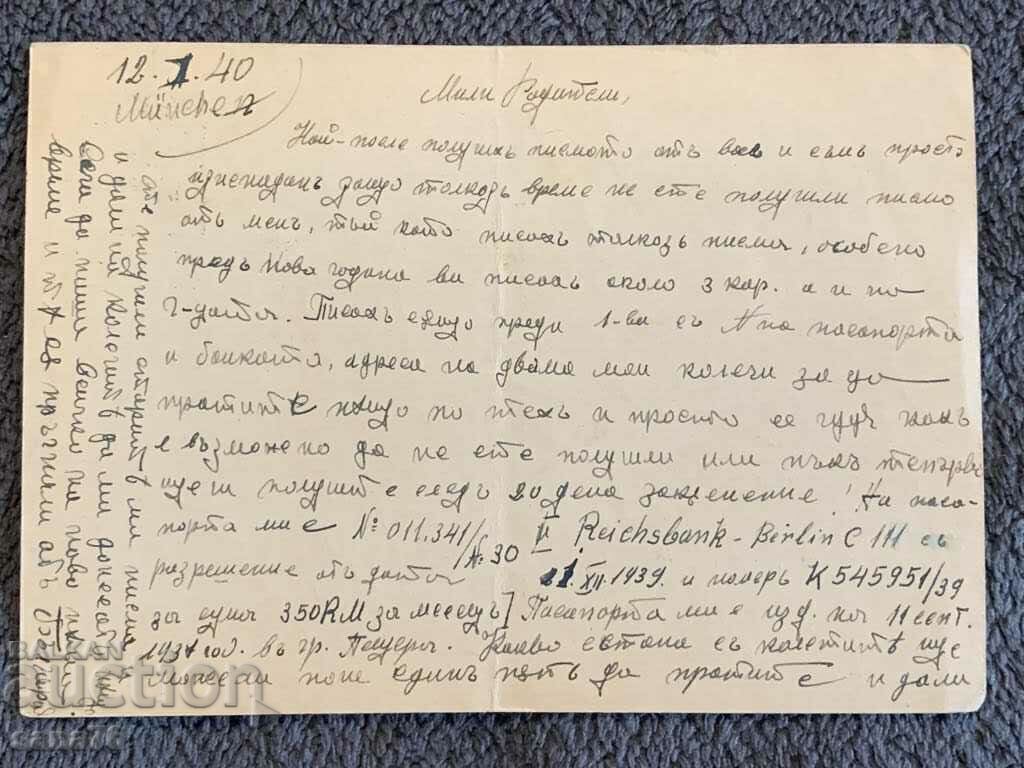 12. I. 40
München
Мили Родители,
Най-после получихъ писмото отъ васъ и съмъ просто
изненаданъ защо толкозъ време не сте получили писмо
отъ менъ, тъй като писахъ толкозъ писма, особено
предъ Нова година ви писахъ около 3 кар. а и по
Писахъ също преди 1-ви съ № на паспорта
и банката, адреса на двама мои колеги за да
пратите нищо по техъ и просто се чудя какъ
е възможно да не сте получили или пъкъ тепърва
ще ги получите следъ 20 дена закъснение! На пасо-
порта ми е № 011.341/ II Reichsbank - Berlin C 111 съ
/№. 30
разрешение отъ дата 21. XII. 1939. и номеръ K 545951/39
за сума 350 RM за месецъ] Пасапорта ми е изд. на 11 септ.
въ гр. Какво стана съ пакетите ще
можели поне единъ пътъ да пратите и дали
сте получили старите ми писма
и дали на колегите да ми донесатъ
да пиша всичко на ново
време и отъ
BALKAN
auction
cana76